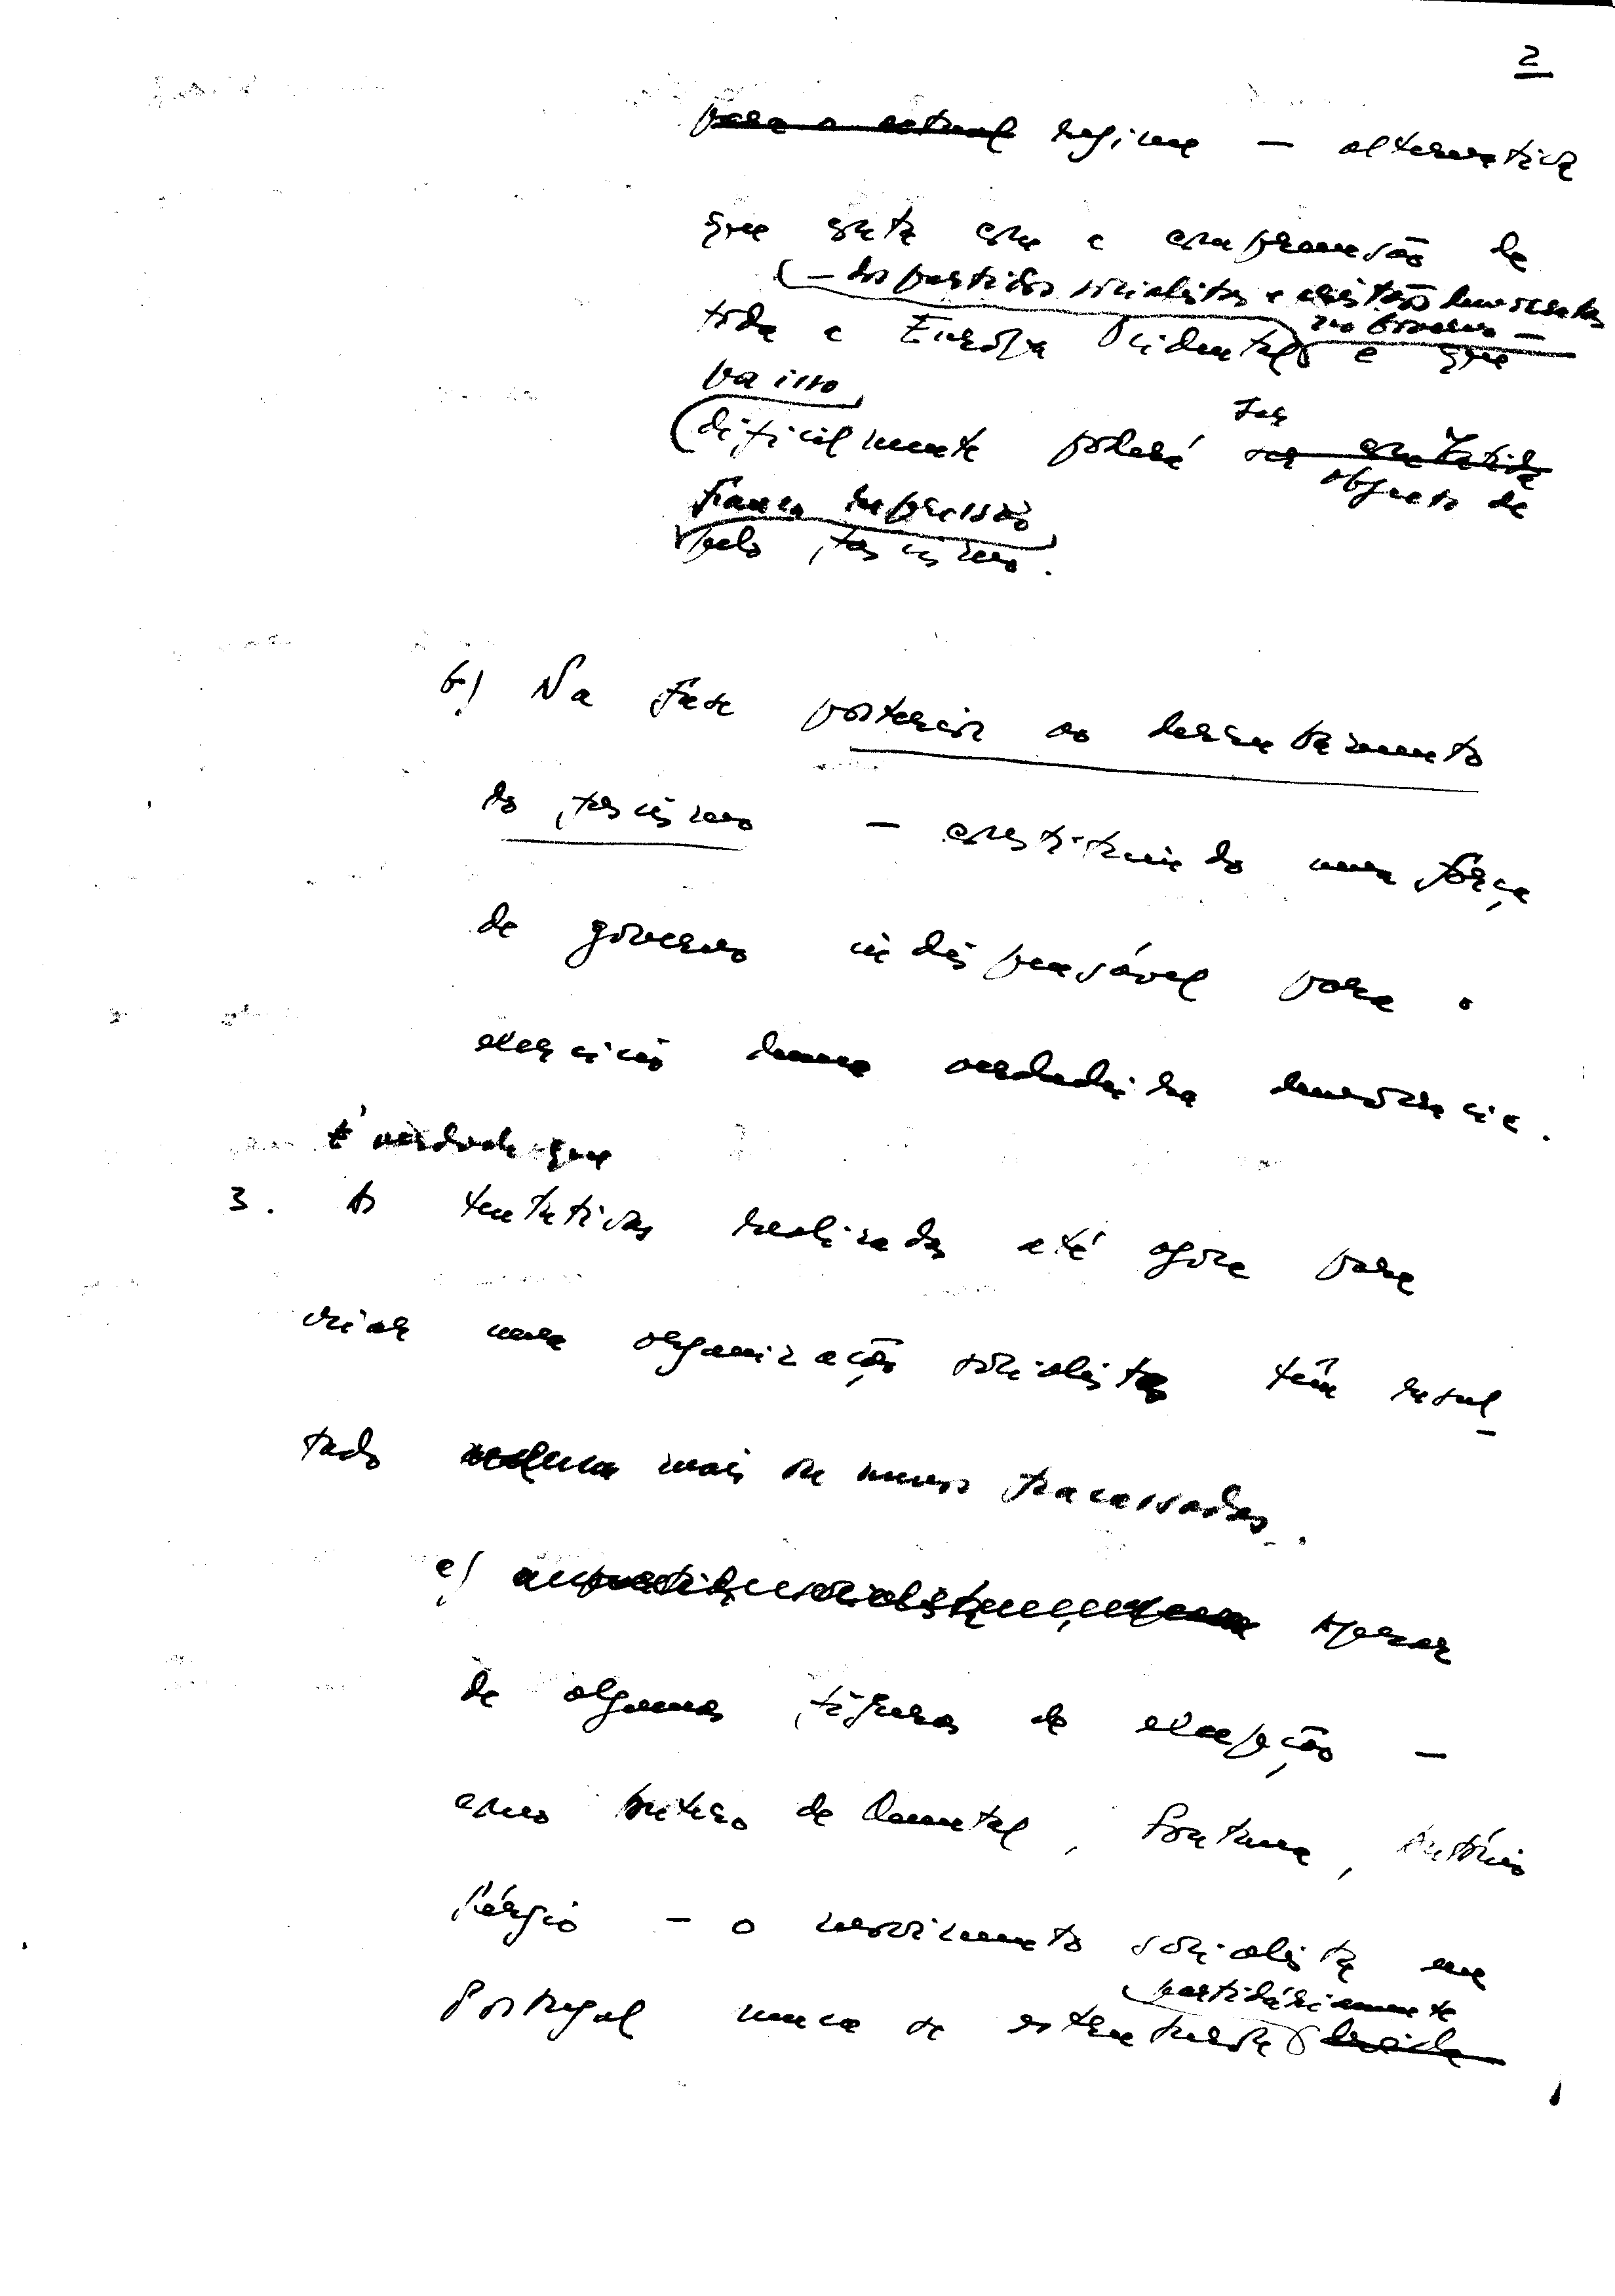 2
para o actual regime — alternativa
que conta com a compreensão de
— dos partidos socialistas e cristãos democratas
no Governo —
toda a Europa Ocidental e que
por isso
dificilmente poderá ser contida
ser
objecto de
franca repressão
pelo fascismo.
b) Na fase posterior ao derrubamento
do fascismo — constituindo uma força
de governo indispensável para o
exercício duma verdadeira democracia.
É verdade que
3. As tentativas realizadas até agora para
criar uma organização socialista têm resul-
tado mais ou menos fracassadas.
a) Apesar
de algumas figuras de excepção —
como Antero de Quental, Fontana, António
Sérgio — o movimento socialista em
partidáriamente
Portugal nunca se estruturou